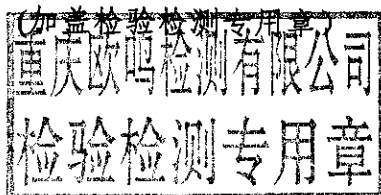 (加盖检验检测专用章)
重庆欧鸣检测有限公司
检验检测专用章